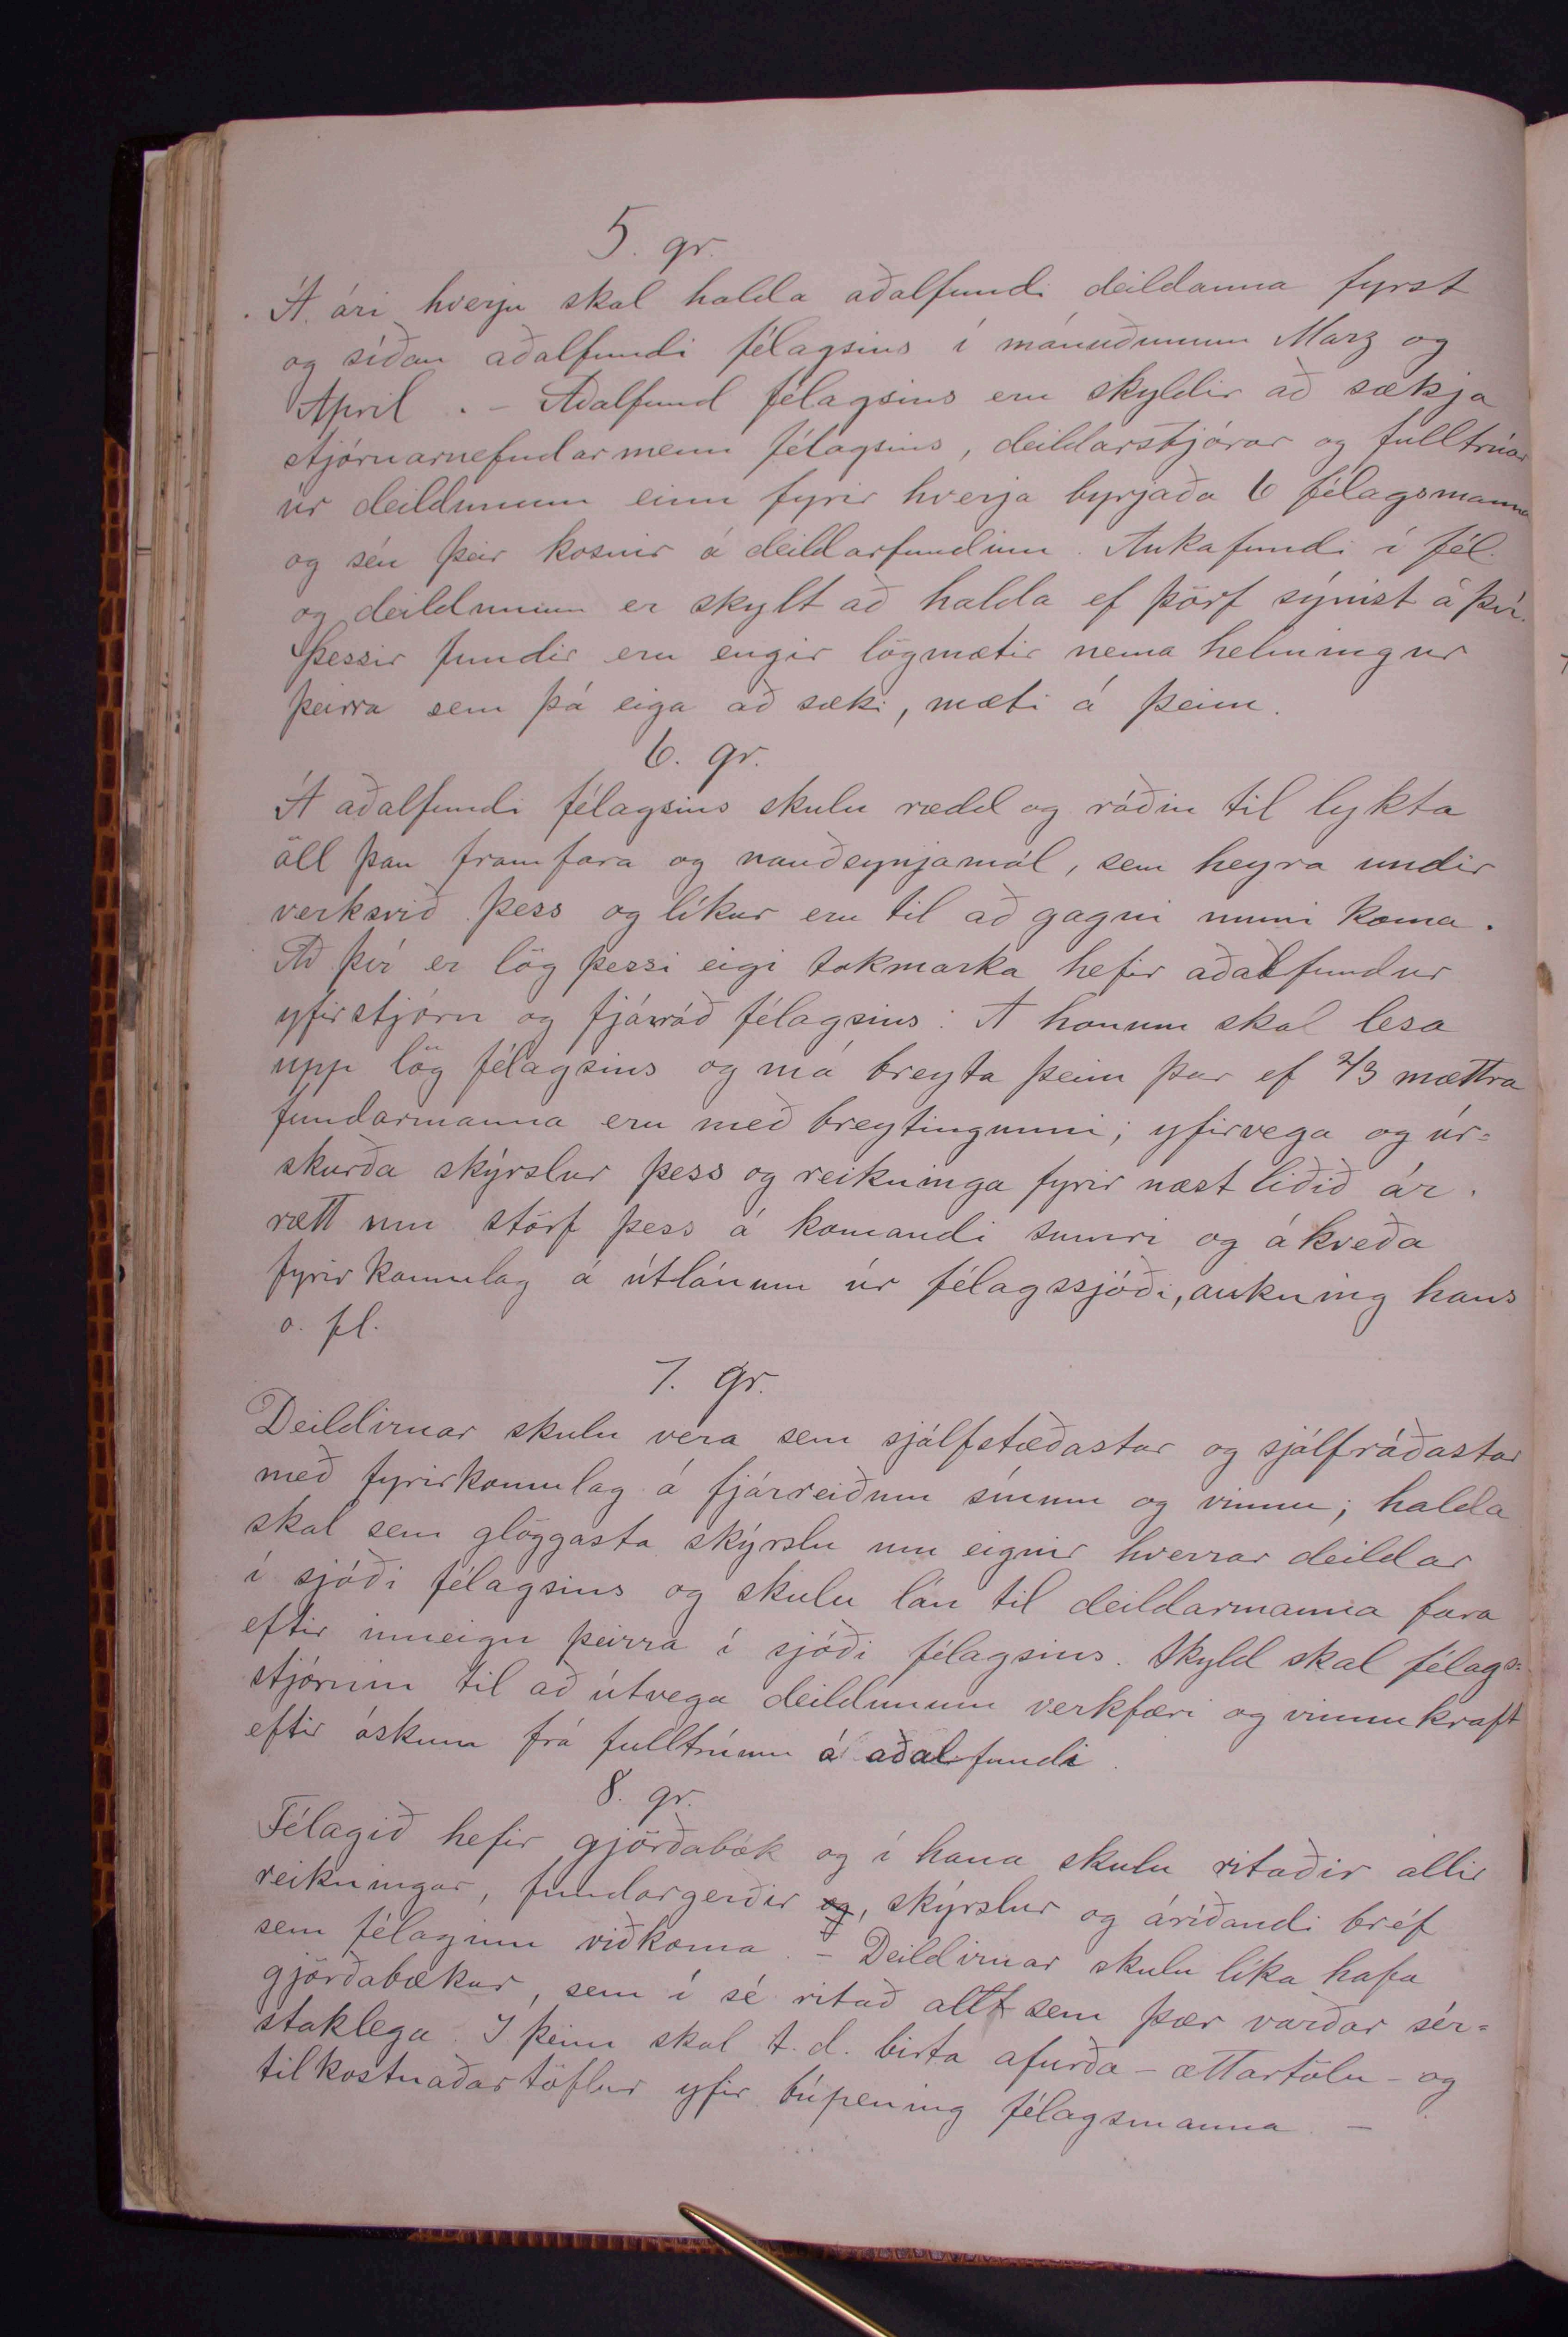 5. gr.
Á ári hverju skal halda aðalfundi deildanna fyrst
og síðan aðalfundi félagsins í mánuðunum Marz og
April . – Aðalfund félagsins eru skyldir að sækja
stjórnarnefndarmenn félagsins, deildarstjórar og fulltrúar
úr deildunum einn fyrir hverja byrjaða 6 félagsmanna
og séu þeir kosnir á deildarfundum. Aukafundi í fél.
og deildunum er skylt að halda ef þörf sýnist á því.
Þessir fundir eru engir lögmætir nema helmingur
þeirra sem þá eiga að sæki, mæti á þeim.
6. gr.
Á aðalfundi félagsins skulu rædd og ráðin til lykta
öll þau framfara og nauðsynjamál, sem heyra undir
verksvið þess og líkur eru til að gagni muni koma.
Að því er lög þessi eigi takmarka hefir aðalfundur
yfirstjórn og fjárráð félagsins: A honum skal lesa
upp lög félagsins og má breyta þeim þar ef 2/3 mættra
fundarmanna eru með breytingunni; yfirvega og úr=
skurða skýrslur þess og reikninga fyrir næst liðið ár.
rætt um störf þess á komandi sumri og ákveða
fyrirkomulag á útlánum úr félagssjóði, aukning hans
o. fl.
7. gr.
Deildirnar skulu vera sem sjálfstæðastar og sjálfráðastar
með fyrirkomulag á fjárreiðum sínum og vinnu; halda
skal sem glöggasta skýrslu um eignir hverrar deildar
í sjóði félagsins og skulu lán til deildarmanna fara
eftir inneign þeirra í sjóði félagsins. Skyld skal félags=
stjórnin til að útvega deildunum verkfæri og vinnukraft
eftir óskum frá fulltrúum á aðalfundi.
8. gr.
Félagið hefir gjörðabók og í hana skulu ritaðir allir
reikningar, fundargerðir og, skýrslur og áríðandi bréf
sem félaginu viðkoma. – Deildirnar skulu líka hafa
gjörðabækur, sem í sé ritað allt sem þær varðar sér=
staklega. I þeim skal t.d. birta afurða – ættartölu – og
tilkostnaðartöflur yfir búpening félagsmanna. –